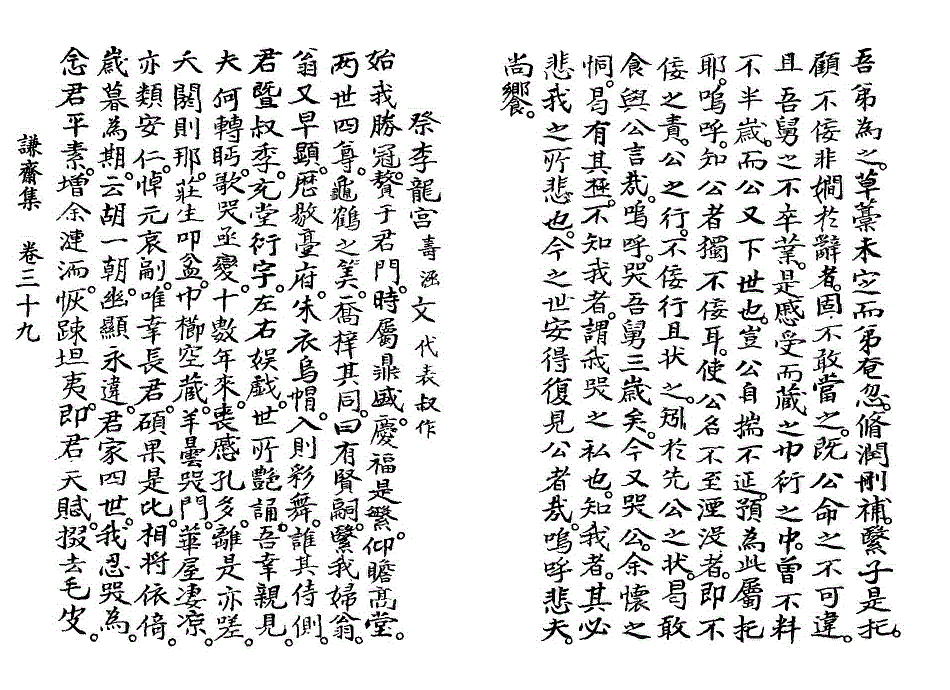 吾弟為之。草藁未定而弟奄忽。脩潤刪補。繄子是托。
顧不佞非嫺於辭者。固不敢當之。旣公命之不可違。
且吾舅之不卒業。是慼受而藏之巾衍之中。曾不料
不半歲。而公又下世也。豈公自揣不延。預為此屬托
耶。嗚呼。知公者獨不佞耳。使公名不至湮沒者。卽不
佞之責。公之行。不佞行且狀之。矧於先公之狀。曷敢
食與公言哉。嗚呼。哭吾舅三歲矣。今又哭公。余懷之
恫。曷有其極。不知我者。謂我哭之私也。知我者。其必
悲我之所悲也。今之世安得復見公者哉。嗚呼悲夫。
尚饗。
祭李龍宮壽涵文 代表叔作
始我勝冠。贅于君門。時屬鼎盛。慶福是繁。仰瞻高堂。
两世四尊。龜鶴之筭。喬梓其同。曰有賢嗣。繄我婦翁。
翁又早顯。歷敭臺府。朱衣烏帽。入則彩舞。誰其侍側。
君曁叔季。充堂衍宇。左右娛戱。世所艶誦。吾幸親見。
夫何轉眄。歌哭亟變。十數年來。喪慼孔多。離是亦嗟。
夭閼則那。莊生叩盆。巾櫛空藏。羊曇哭門。華屋凄凉。
亦類安仁。悼亢哀嗣。唯幸長君。碩果是比。相將依倚。
歲暮為期。云胡一朝。幽顯永違。君家四世。我忍哭為。
念君平素。增余漣洏。恢踈坦夷。卽君天賦。掇去毛皮。
謙齋集 卷三十九